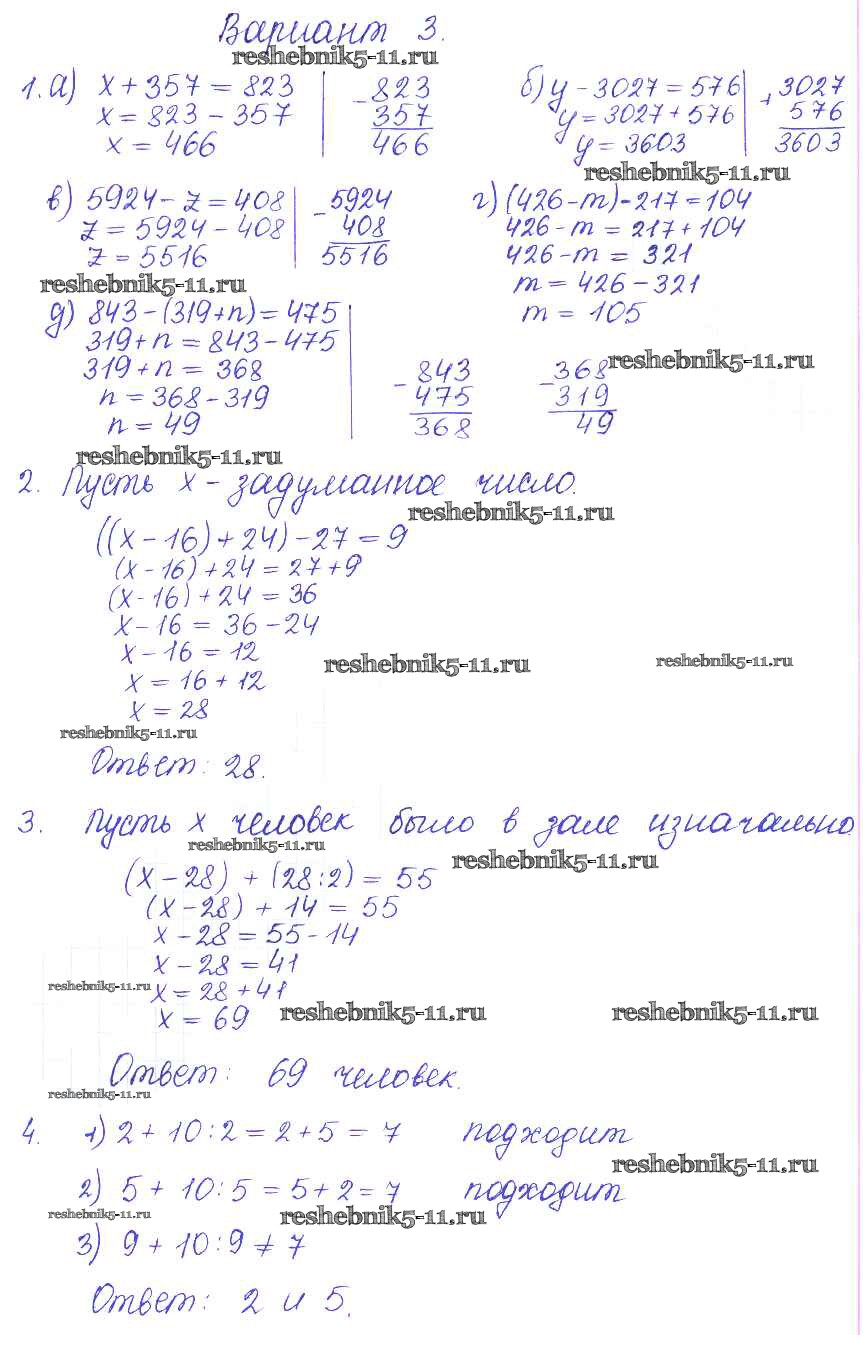 Вариант 3.
reshebnik5-11.ru
1. а) x + 357 = 823
x = 823 - 357
x = 466
- 823
357
466
б) y - 3027 = 576
y = 3027 + 576
y = 3603
+ 3027
576
3603
reshebnik5-11.ru
в) 5924 - z = 408
z = 5924 - 408
z = 5516
- 5924
408
5516
г) (426 - m) - 217 = 104
426 - m = 217 + 104
426 - m = 321
m = 426 - 321
m = 105
reshebnik5-11.ru
д) 843 - (319 + n) = 475
319 + n = 843 - 475
319 + n = 368
n = 368 - 319
n = 49
- 843
475
368
- 368
319
49
reshebnik5-11.ru
reshebnik5-11.ru
2. Пусть x - задуманное число.
reshebnik5-11.ru
((x - 16) + 24) - 27 = 9
(x - 16) + 24 = 27 + 9
(x - 16) + 24 = 36
x - 16 = 36 - 24
x - 16 = 12
reshebnik5-11.ru
reshebnik5-11.ru
x = 16 + 12
x = 28
reshebnik5-11.ru
Ответ: 28.
3. Пусть x человек было в зале изначально
reshebnik5-11.ru
reshebnik5-11.ru
(x - 28) + (28 : 2) = 55
(x - 28) + 14 = 55
x - 28 = 55 - 14
x - 28 = 41
reshebnik5-11.ru
x = 28 + 41
x = 69
reshebnik5-11.ru
reshebnik5-11.ru
Ответ: 69 человек.
reshebnik5-11.ru
4. 1) 2 + 10 : 2 = 2 + 5 = 7 подходит
reshebnik5-11.ru
2) 5 + 10 : 5 = 5 + 2 = 7 подходит
reshebnik5-11.ru
reshebnik5-11.ru
3) 9 + 10 : 9 ≠ 7
Ответ: 2 и 5.